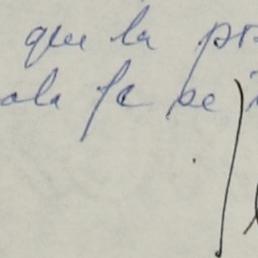 que la pr
ala fe se